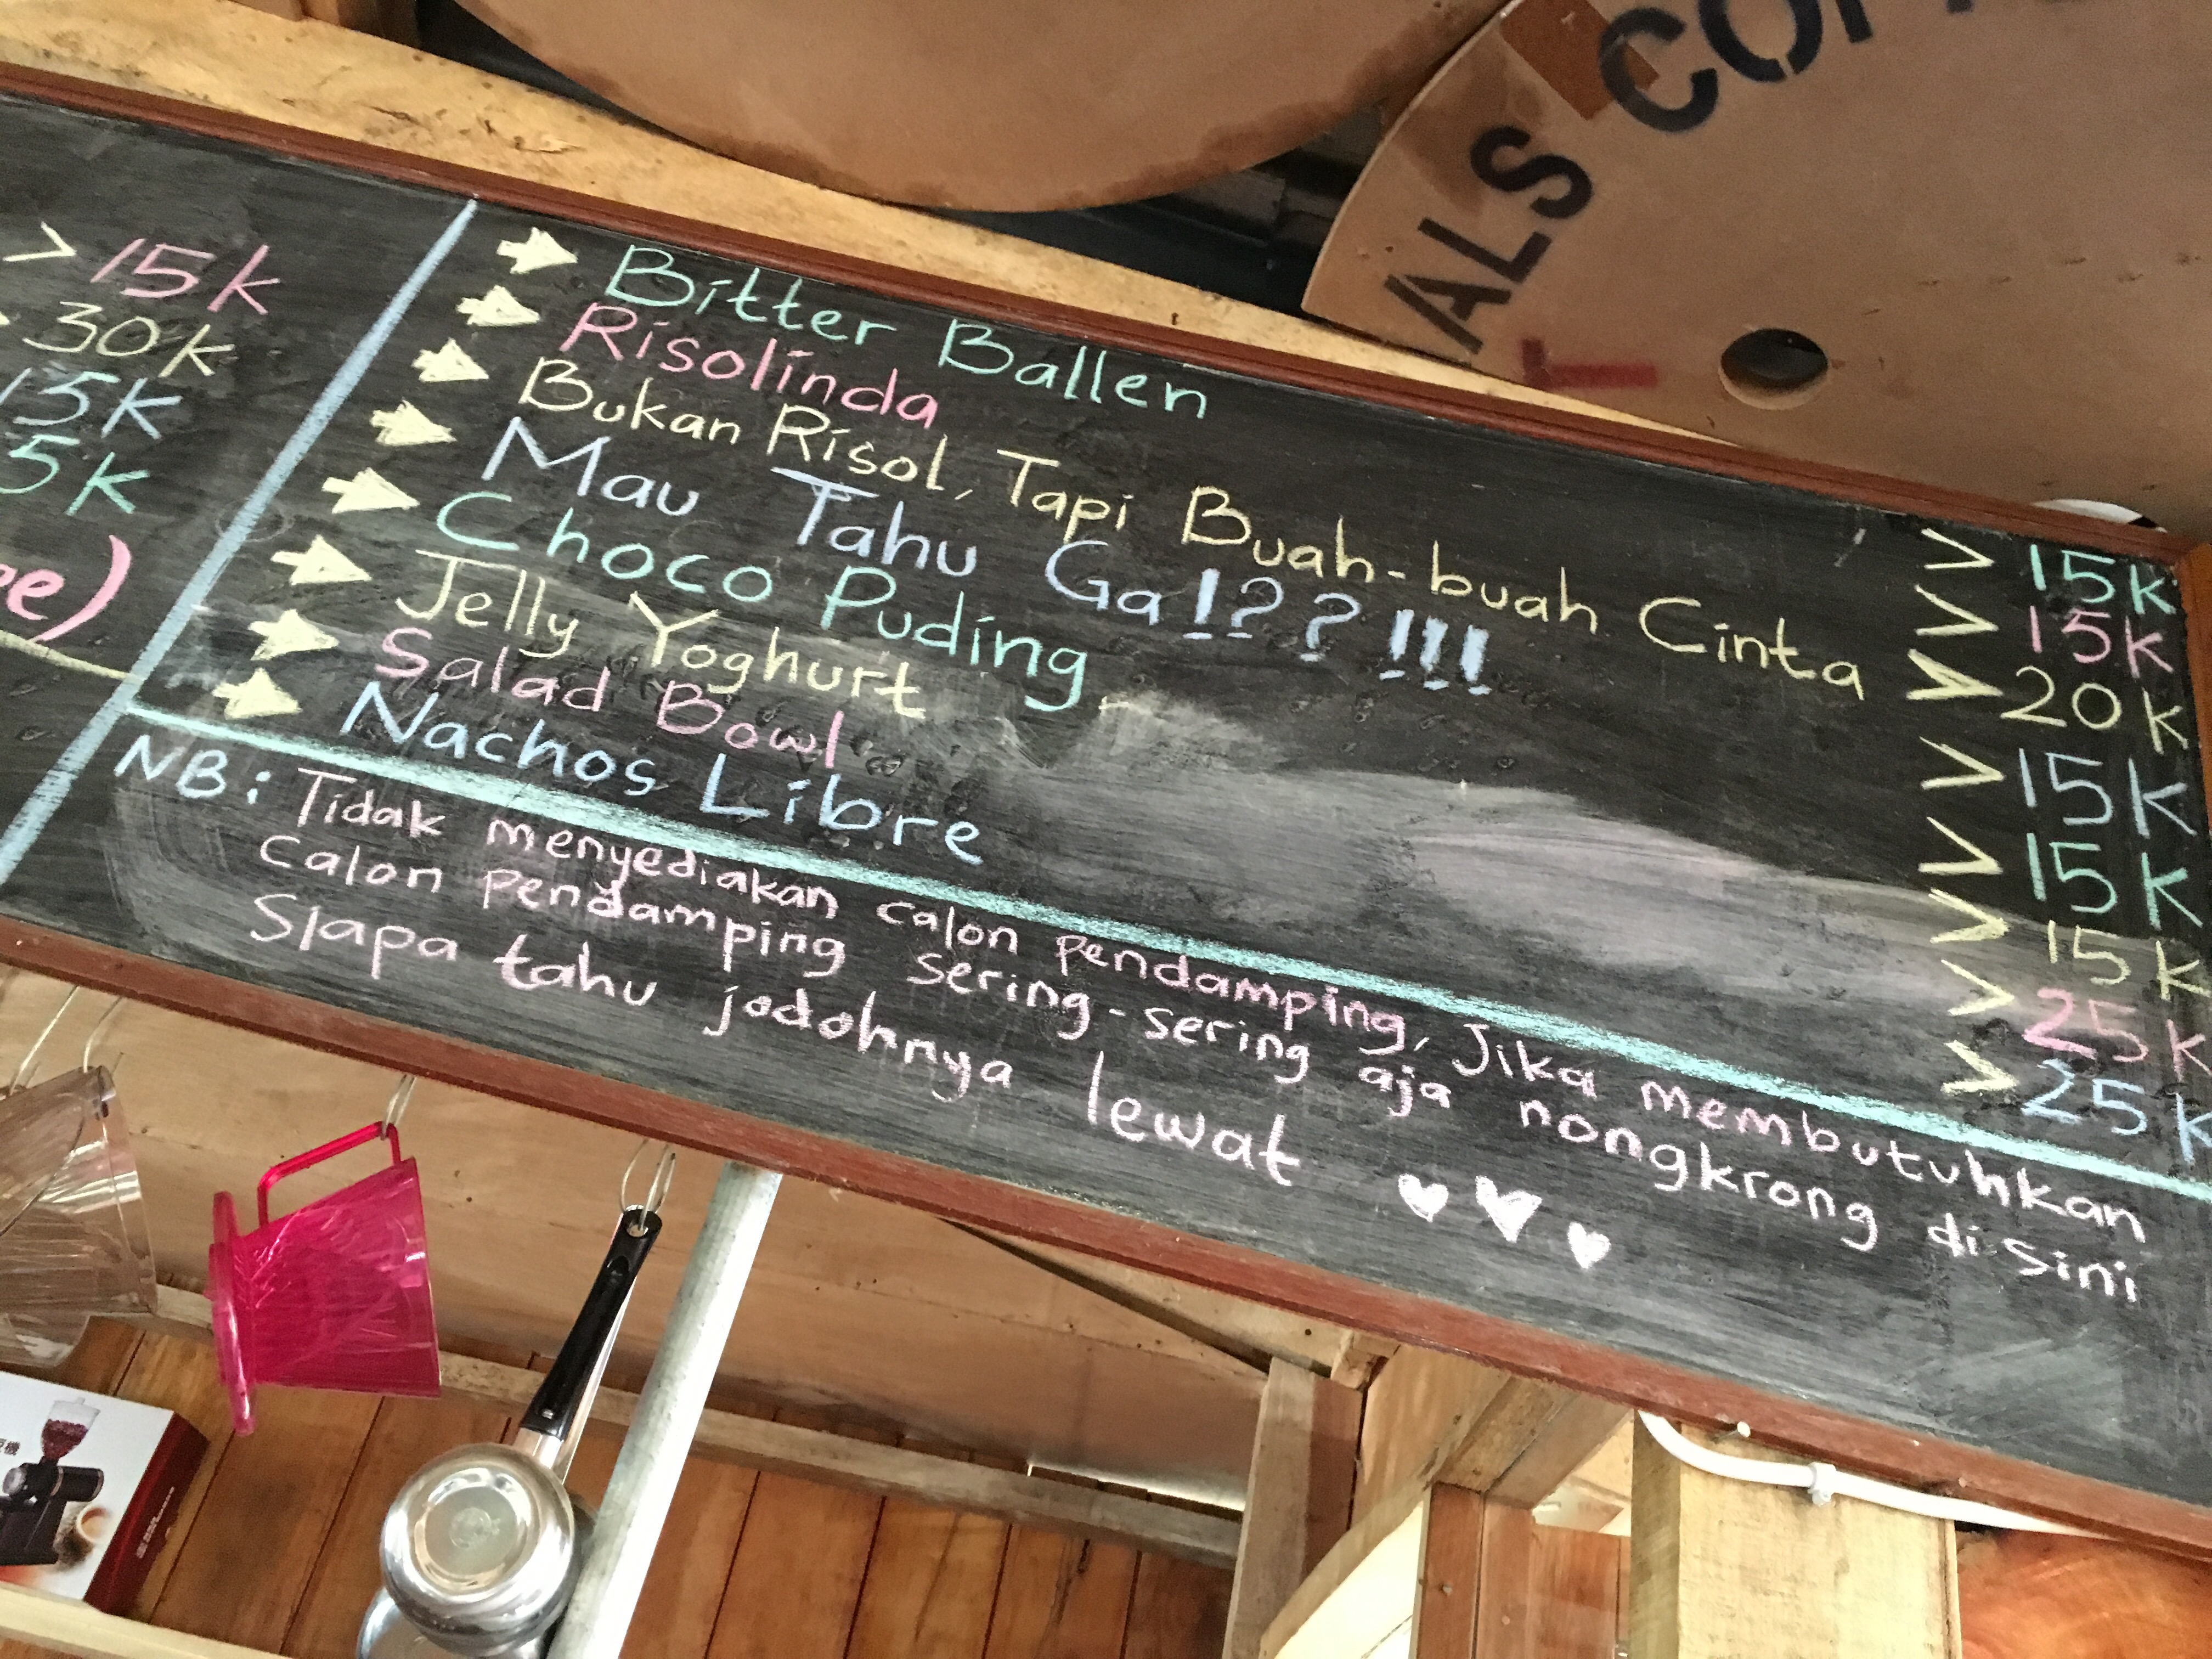 ALS
> 15K
30K
15K
5K
Bitter Ballen > 15K
Risolinda > 15K
Bukan Risol, Tapi Buah-buah Cinta > 20K
Mau Tahu Ga!??!!! > 15K
Choco Puding > 15K
Jelly Yoghurt > 15K
Salad Bowl > 25K
Nachos Libre > 25K
NB: Tidak menyediakan calon pendamping, Jika membutuhkan
calon pendamping sering-sering aja nongkrong di sini
Siapa tahu jodohnya lewat